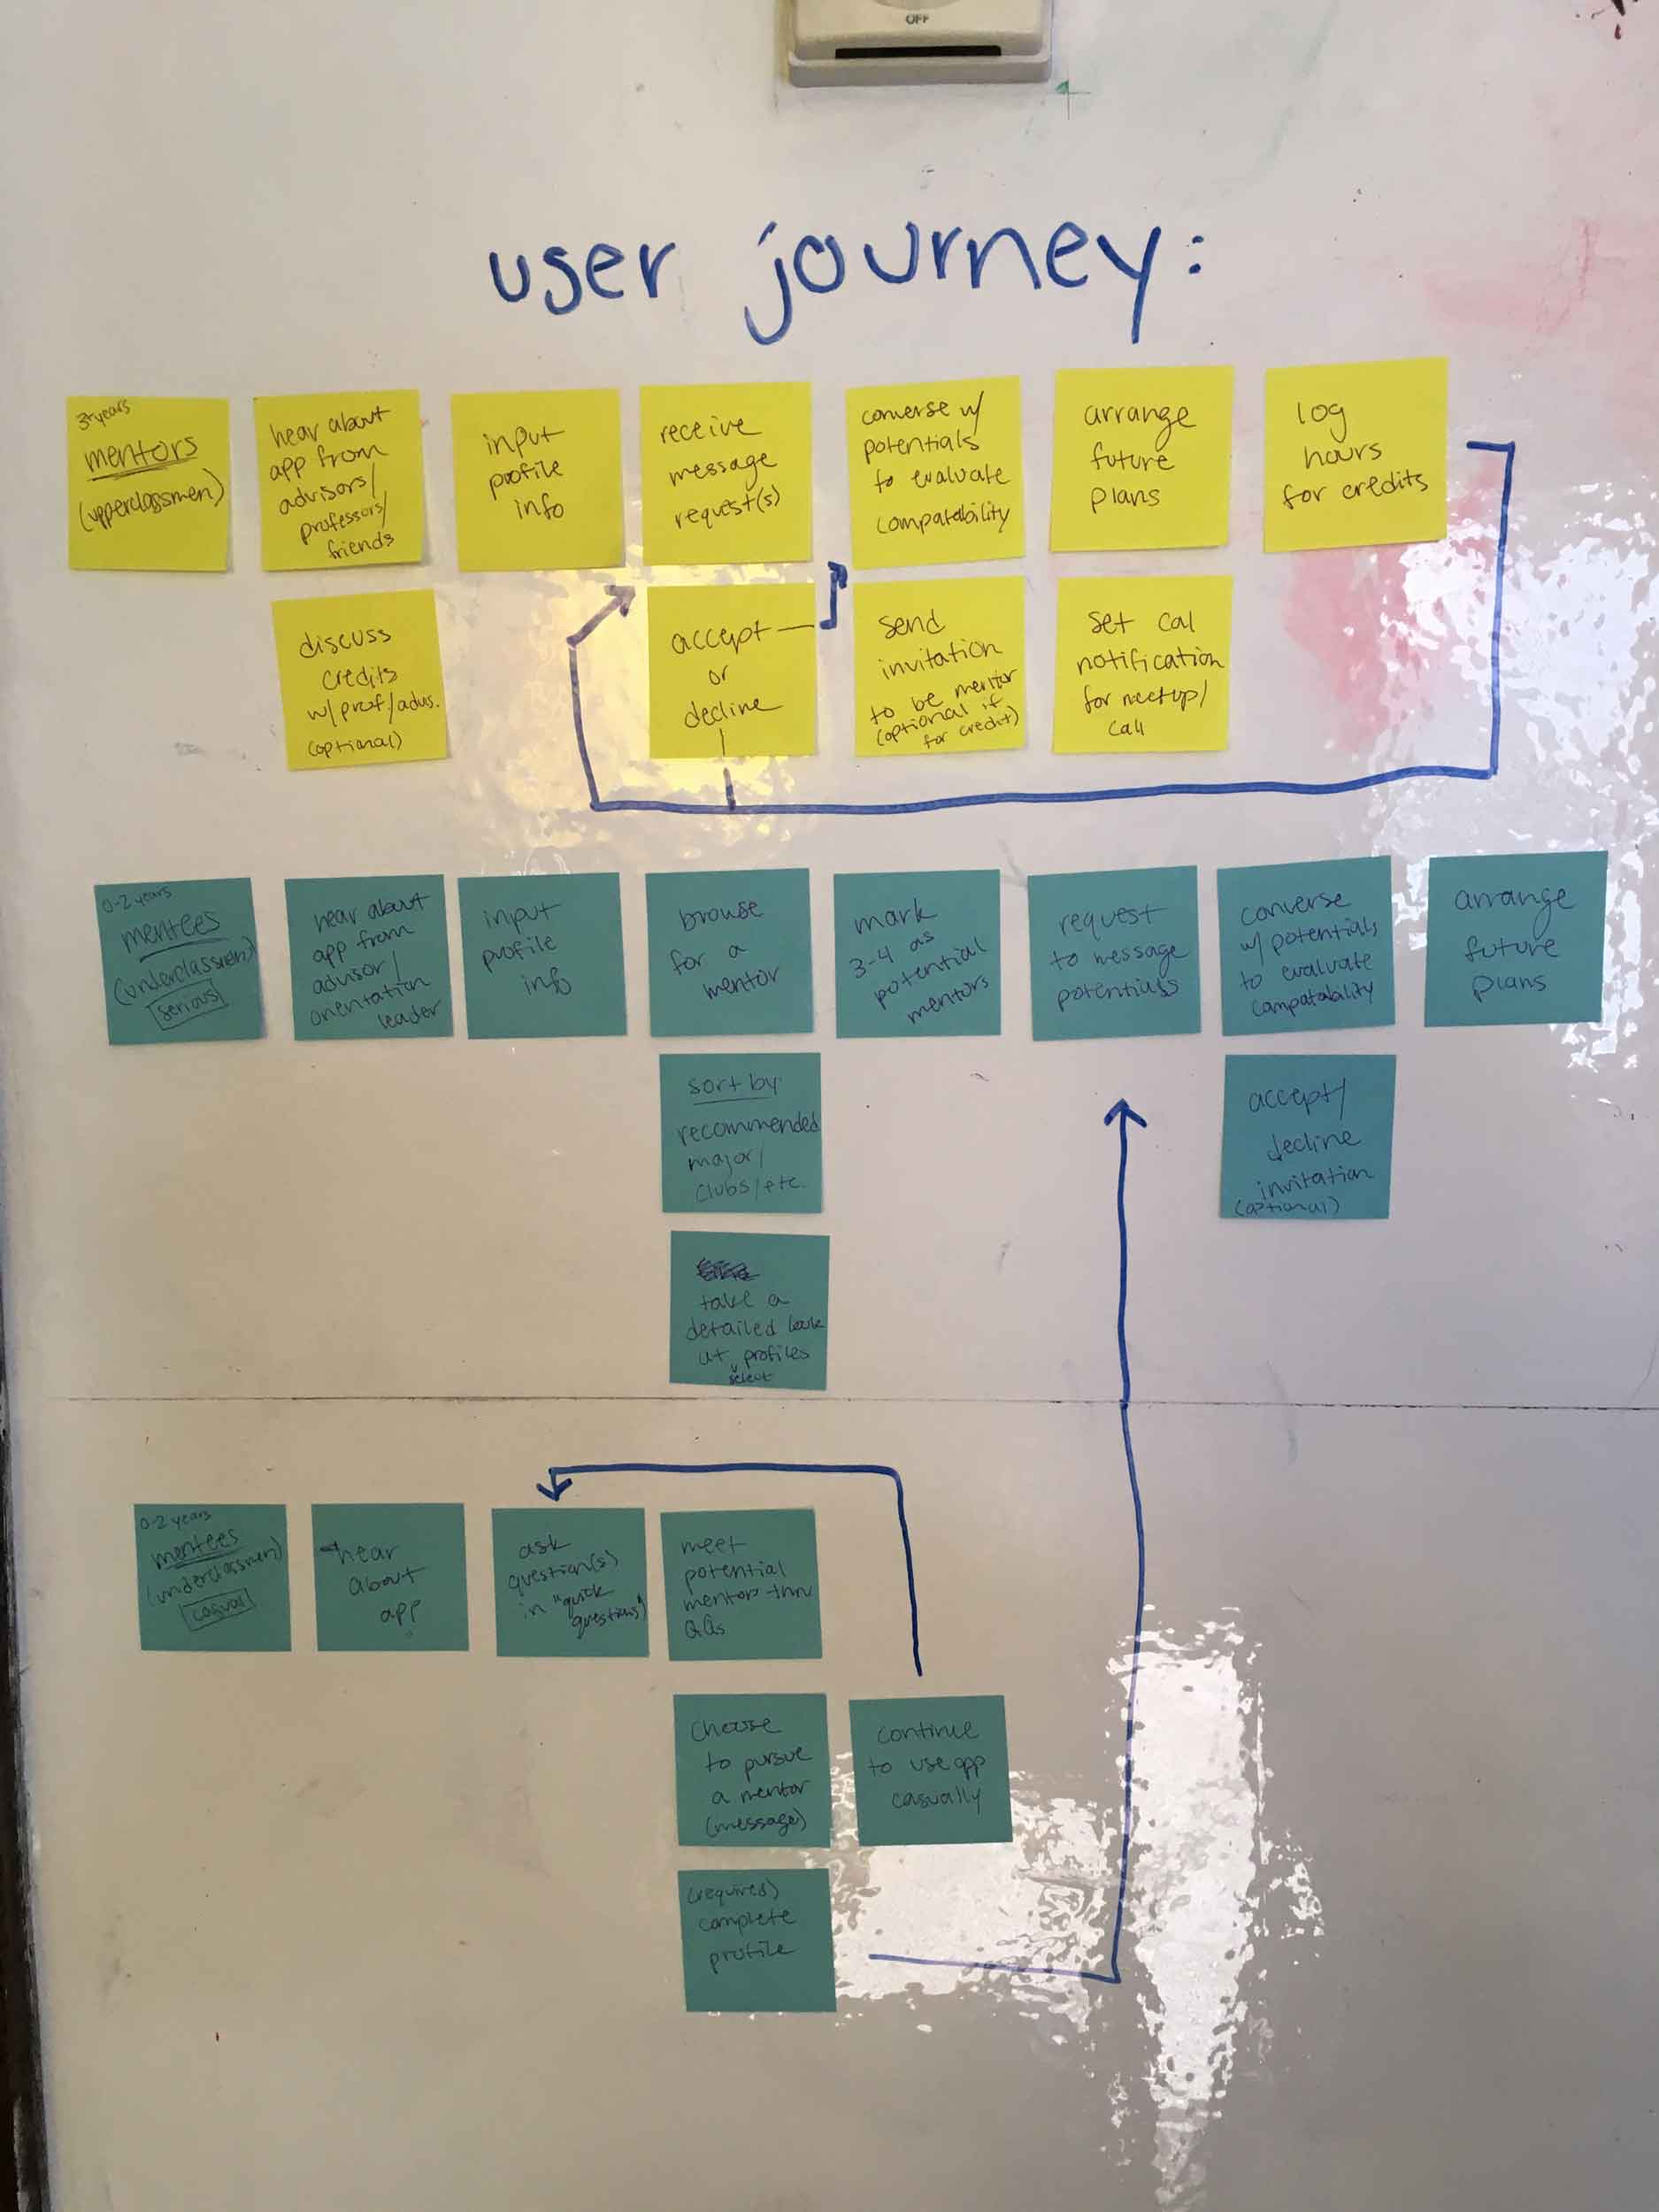 OFF
user journey:
3+years
mentors
(upperclassmen)
hear about
app from
advisors/
professors/
friends
input
profile
info
receive
message
request(s)
converse w/
potentials
to evaluate
compatability
arrange
future
plans
log
hours
for credits
discuss
credits
w/prof./advis.
(optional)
accept
or
decline
send
invitation
to be mentor
(optional if
for credit)
set cal
notification
for meetup/
call
0-2 years
mentees
(underclassmen)
serious
hear about
app from
advisor/
orientation
leader
input
profile
info
browse
for a
mentor
mark
3-4 as
potential
mentors
request
to message
potentials
converse
w/ potentials
to evaluate
compatability
arrange
future
plans
sort by:
recommended
major/
clubs/etc.
accept/
decline
invitation
(optional)
take a
detailed look
at select profiles
0-2 years
mentees
(underclassmen)
casual
hear
about
app
ask
question(s)
in "quick
questions"
meet
potential
mentor thru
QQs
choose
to pursue
a mentor
(message)
continue
to use app
casually
(required)
complete
profile